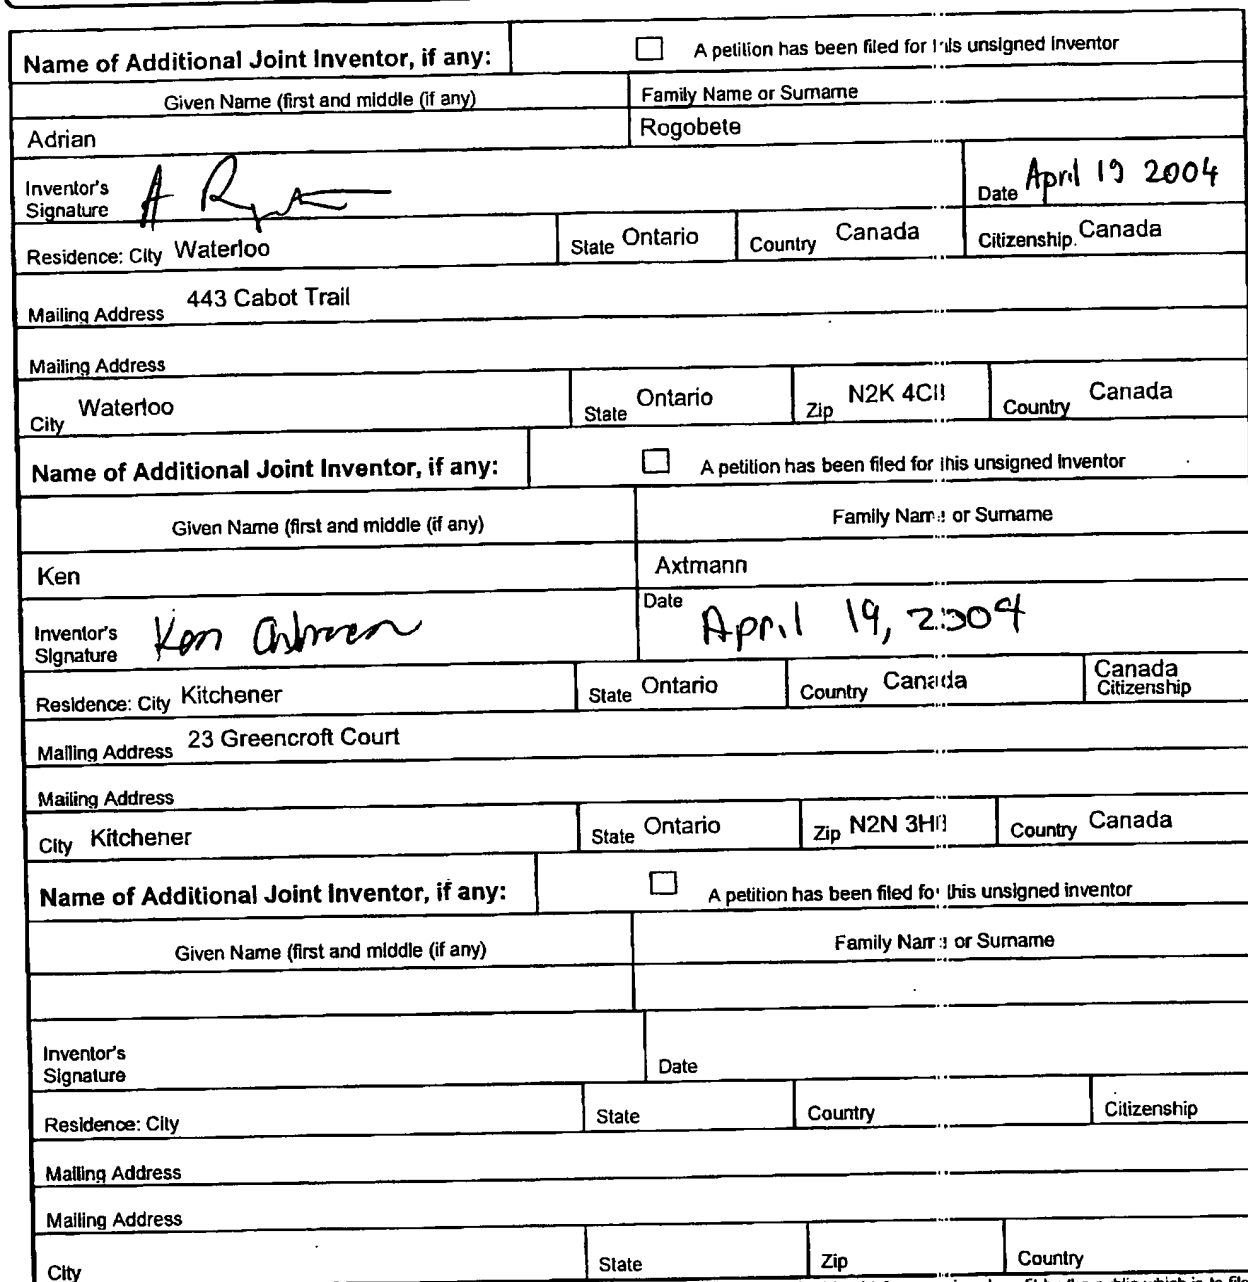 Name of Additional Joint Inventor, if any: A petition has been filed for this unsigned inventor
Given Name (first and middle (if any) Family Name or Surname
Adrian Rogobete
Inventor's
Signature A Date April 19 2004
Residence: City Waterloo State Ontario Country Canada Citizenship. Canada
Mailing Address 443 Cabot Trail
Mailing Address
City Waterloo State Ontario Zip N2K Country Canada
Name of Additional Joint Inventor, if any: A petition has been filed for this unsigned inventor
Given Name (first and middle (if any) Family Name or Surname
Ken Axtmann
Inventor's
Signature Ken Axtmann Date April 19, 2004
Residence: City Kitchener State Ontario Country Canada Canada
Citizenship
Mailing Address 23 Greencroft Court
Mailing Address
City Kitchener State Ontario Zip N2N Country Canada
Name of Additional Joint Inventor, if any: A petition has been filed for this unsigned inventor
Given Name (first and middle (if any) Family Name or Surname
Inventor's
Signature Date
Residence: City State Country Citizenship
Mailing Address
Mailing Address
City State Zip Country